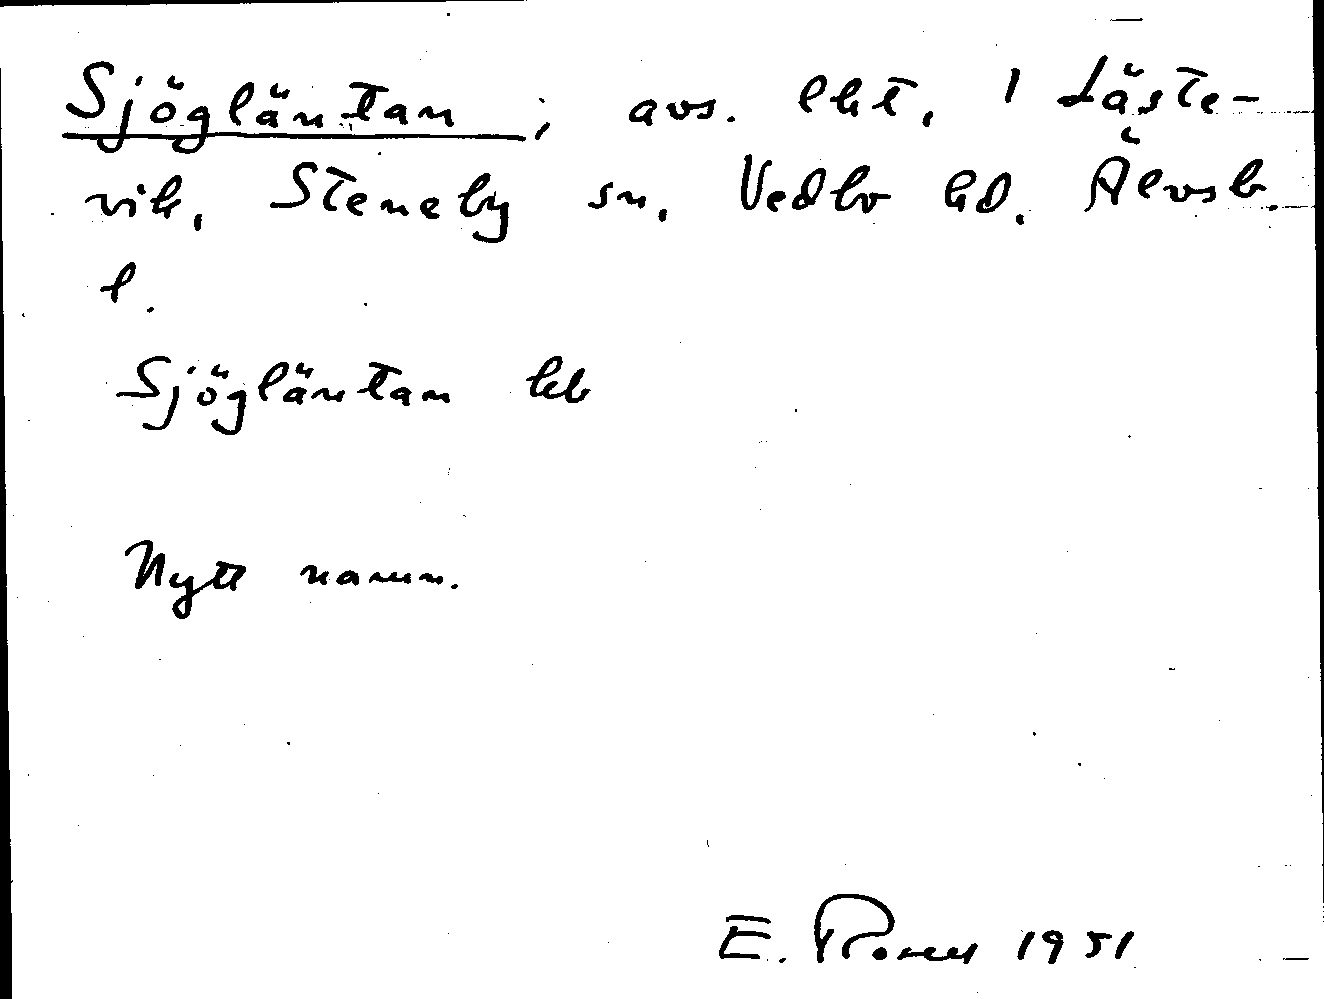 Sjögläntan, avs. lht. 1 Läste-
vik, Steneby sn, Vedbo hd. Älvsb.
l.
Sjögläntan kb
Nytt namn.
E. Rosell 1951